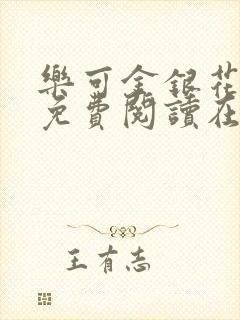 樂可金銀花
免費閱讀在
王有志